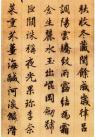 秋收冬藏閏餘成歲律呂
調陽雲騰致雨露結為霜
金生麗水玉出崑岡劍號
巨闕珠稱夜光果珍李柰
菜重芥薑海鹹河淡鱗潛